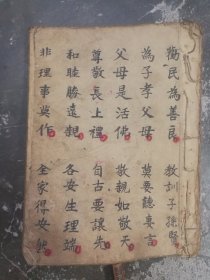 勸民為善良
教訓子孫賢
為子孝父母
莫要聽妻言
父母是活佛
敬親如敬天
尊敬長上禮
自古要讓先
和睦勝遠親
各安生理端
非理事莫作
全家得安然